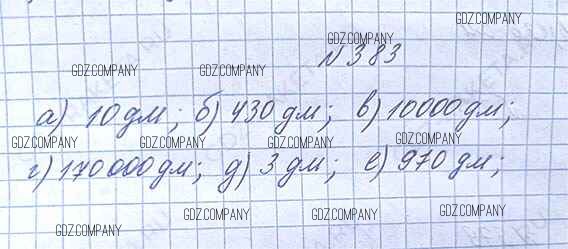 GDZ.COMPANY
N 383
GDZ.COMPANY
GDZ.COMPANY GDZ.COMPANY GDZ.COMPANY
а) 10 дм; б) 430 дм; в) 10000 дм;
GDZ.COMPANY GDZ.COMPANY GDZ.COMPANY GDZ.COMPANY
г) 170 000 дм; д) 3 дм; е) 970 дм;
GDZ.COMPANY GDZ.COMPANY GDZ.COMPANY
GDZ.COMPANY